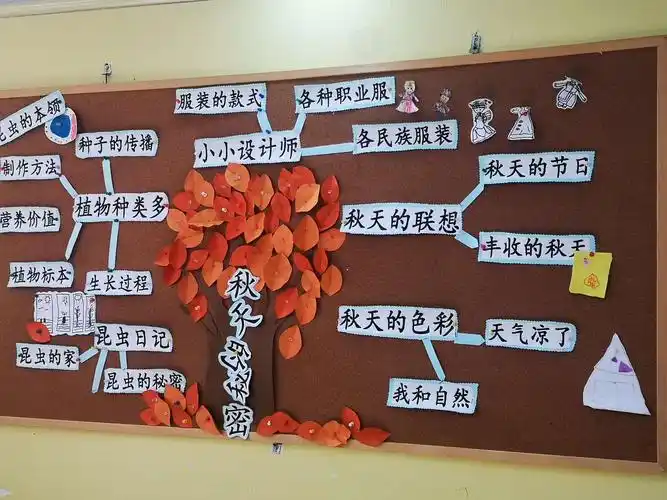 昆虫的本领
种子的传播
制作方法
植物种类多
营养价值
植物标本
生长过程
昆虫日记
昆虫的家
昆虫的秘密
服装的款式
各种职业服
小小设计师
各民族服装
秋天的秘密
秋天的节日
秋天的联想
丰收的秋天
秋天的色彩
天气凉了
我和自然